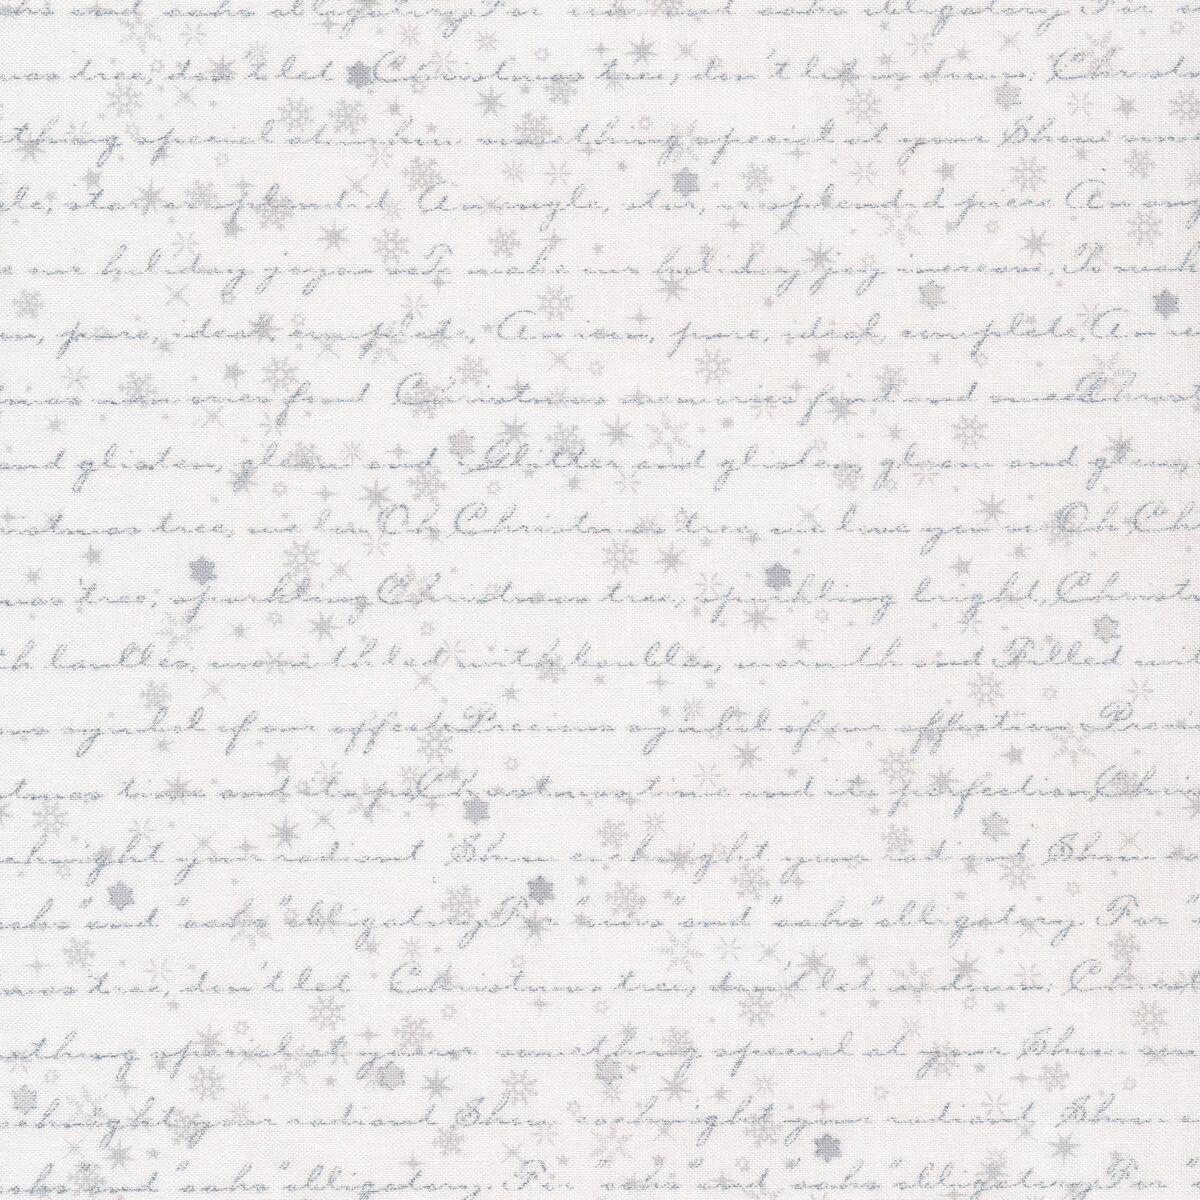 oohs and oohs obligatory. For and oohs obligatory. For
mas tree, don't let Christmas tree, don't let us down: Christm
ething special at something special at your Show some
gle, star, resplendid An angle, star, resplendid piece An ang
e our holiday joy To make our holiday joy increase, To make
on, pure, ideal, complete, An icon, pure, ideal, complete, An ico
mas memories fond Christmas memories fond and sweet Christ
and glisten, gleam and Glitter and glisten, gleam and glow,
istmas tree, we lov Oh Christmas tree, we love you so Oh Ch
mas tree, sparkling Christmas tree, sparkling bright, Christm
th baubles, warmth led with baubles, warmth and Filled wit
ous symbol of our affecti Precious symbol of our affection, Prec
stmas time and its pe Christmas time and its perfection, Chri
each night your radiant Show each night your radiant Show ea
oohs" and "aahs" obligatory. For "oohs" and "aahs" obligatory. For "
mas tree, don't let Christmas tree, don't let us down: Christ
ething special at your something special at your Show som
each night your radiant Show each night your radiant Show e
oohs" and "aahs" obligatory. For "oohs" and "aahs" obligatory. For "